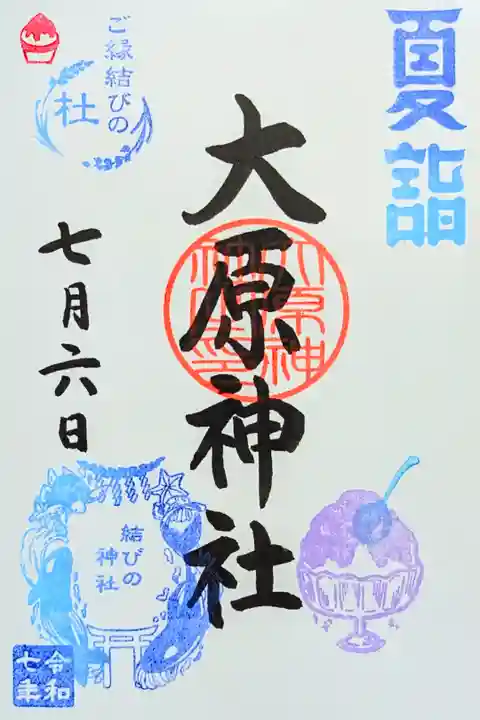 夏詣
大原神社
ご縁結びの
杜
七月六日
結びの
神社
令和
七年